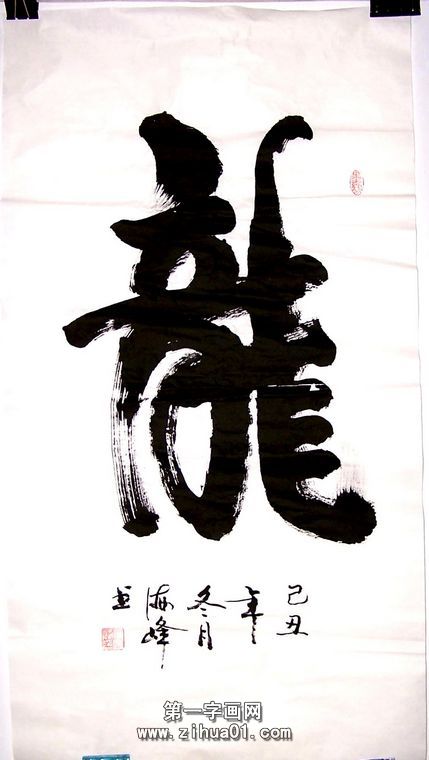 龍
己丑
年
冬月
海峰
书
第一字画网
www.zihua01.com